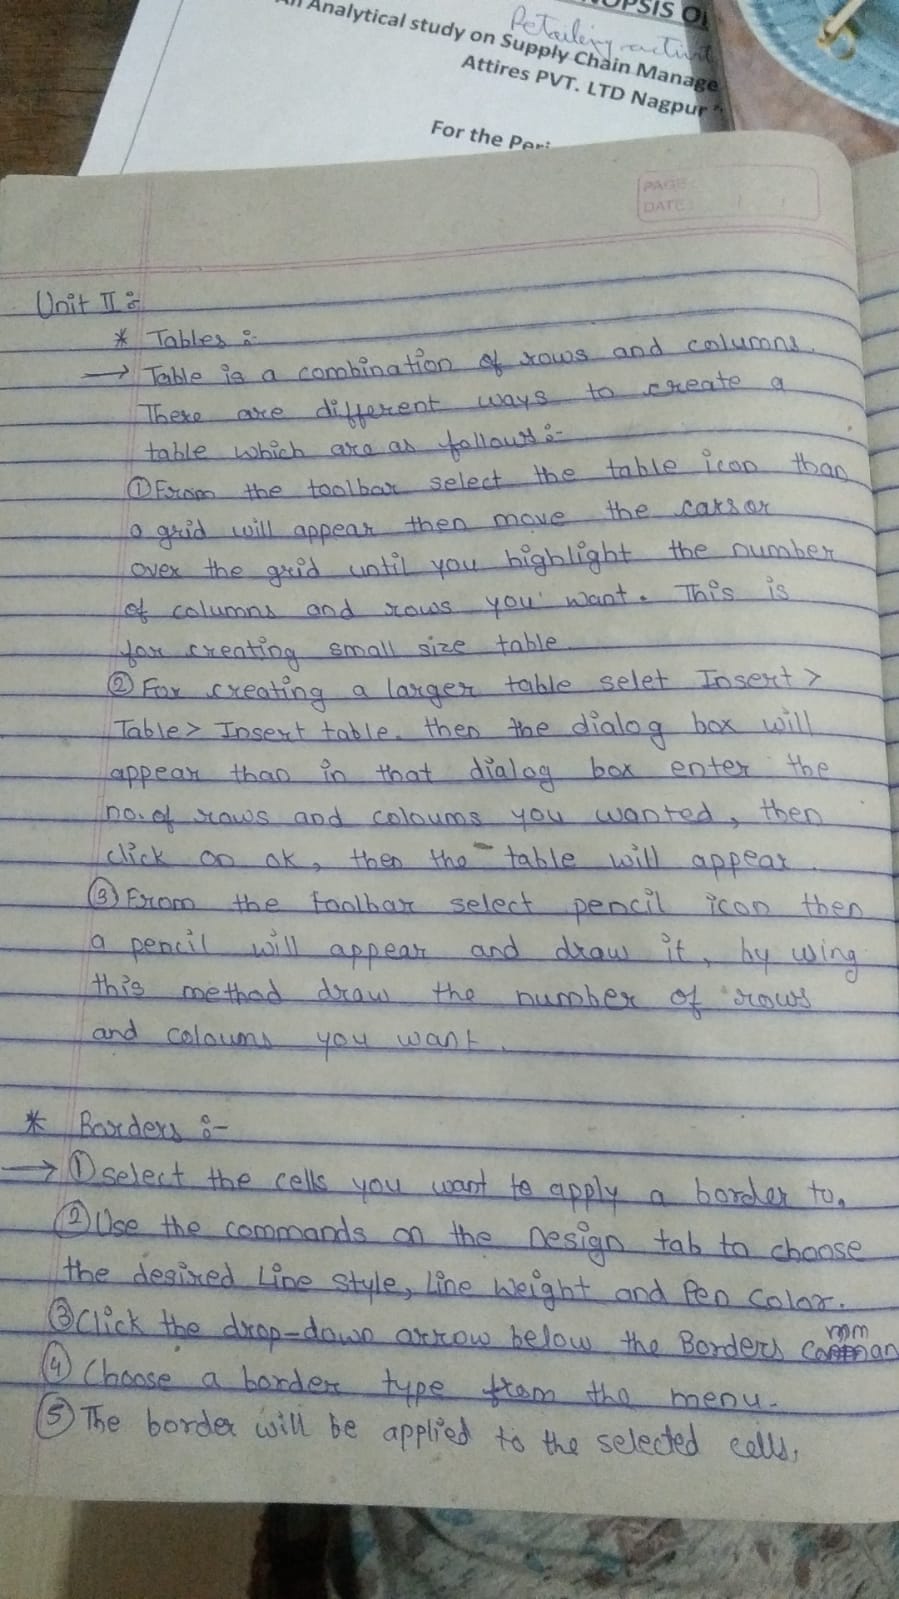 OPSIS OF
Retailing activit
An Analytical study on Supply Chain Manage
Attires PVT. LTD Nagpur "
For the Peri
PAGE:
DATE: / /
Unit II :-
* Tables :-
→ Table is a combination of rows and columns.
There are different ways to create a
table which are as follows :-
① From the toolbar select the table icon than
a grid will appear then move the carsor
over the grid until you highlight the number
of columns and rows you want. This is
for creating small size table.
② For creating a larger table selet Insert >
Table > Insert table. then the dialog box will
appear than in that dialog box enter the
no. of rows and coloums you wanted, then
click on ok, then the table will appear.
③ From the toolbar select pencil icon then
a pencil will appear and draw it, by using
this method draw the number of rows
and coloums you want.
* Borders :-
→ ① select the cells you want to apply a border to.
② Use the commands on the Design tab to choose
the desired Line Style, Line Weight and Pen Color.
③ Click the drop-down arrow below the Borders Comman
④ Choose a border type from the menu.
⑤ The border will be applied to the selected cells.